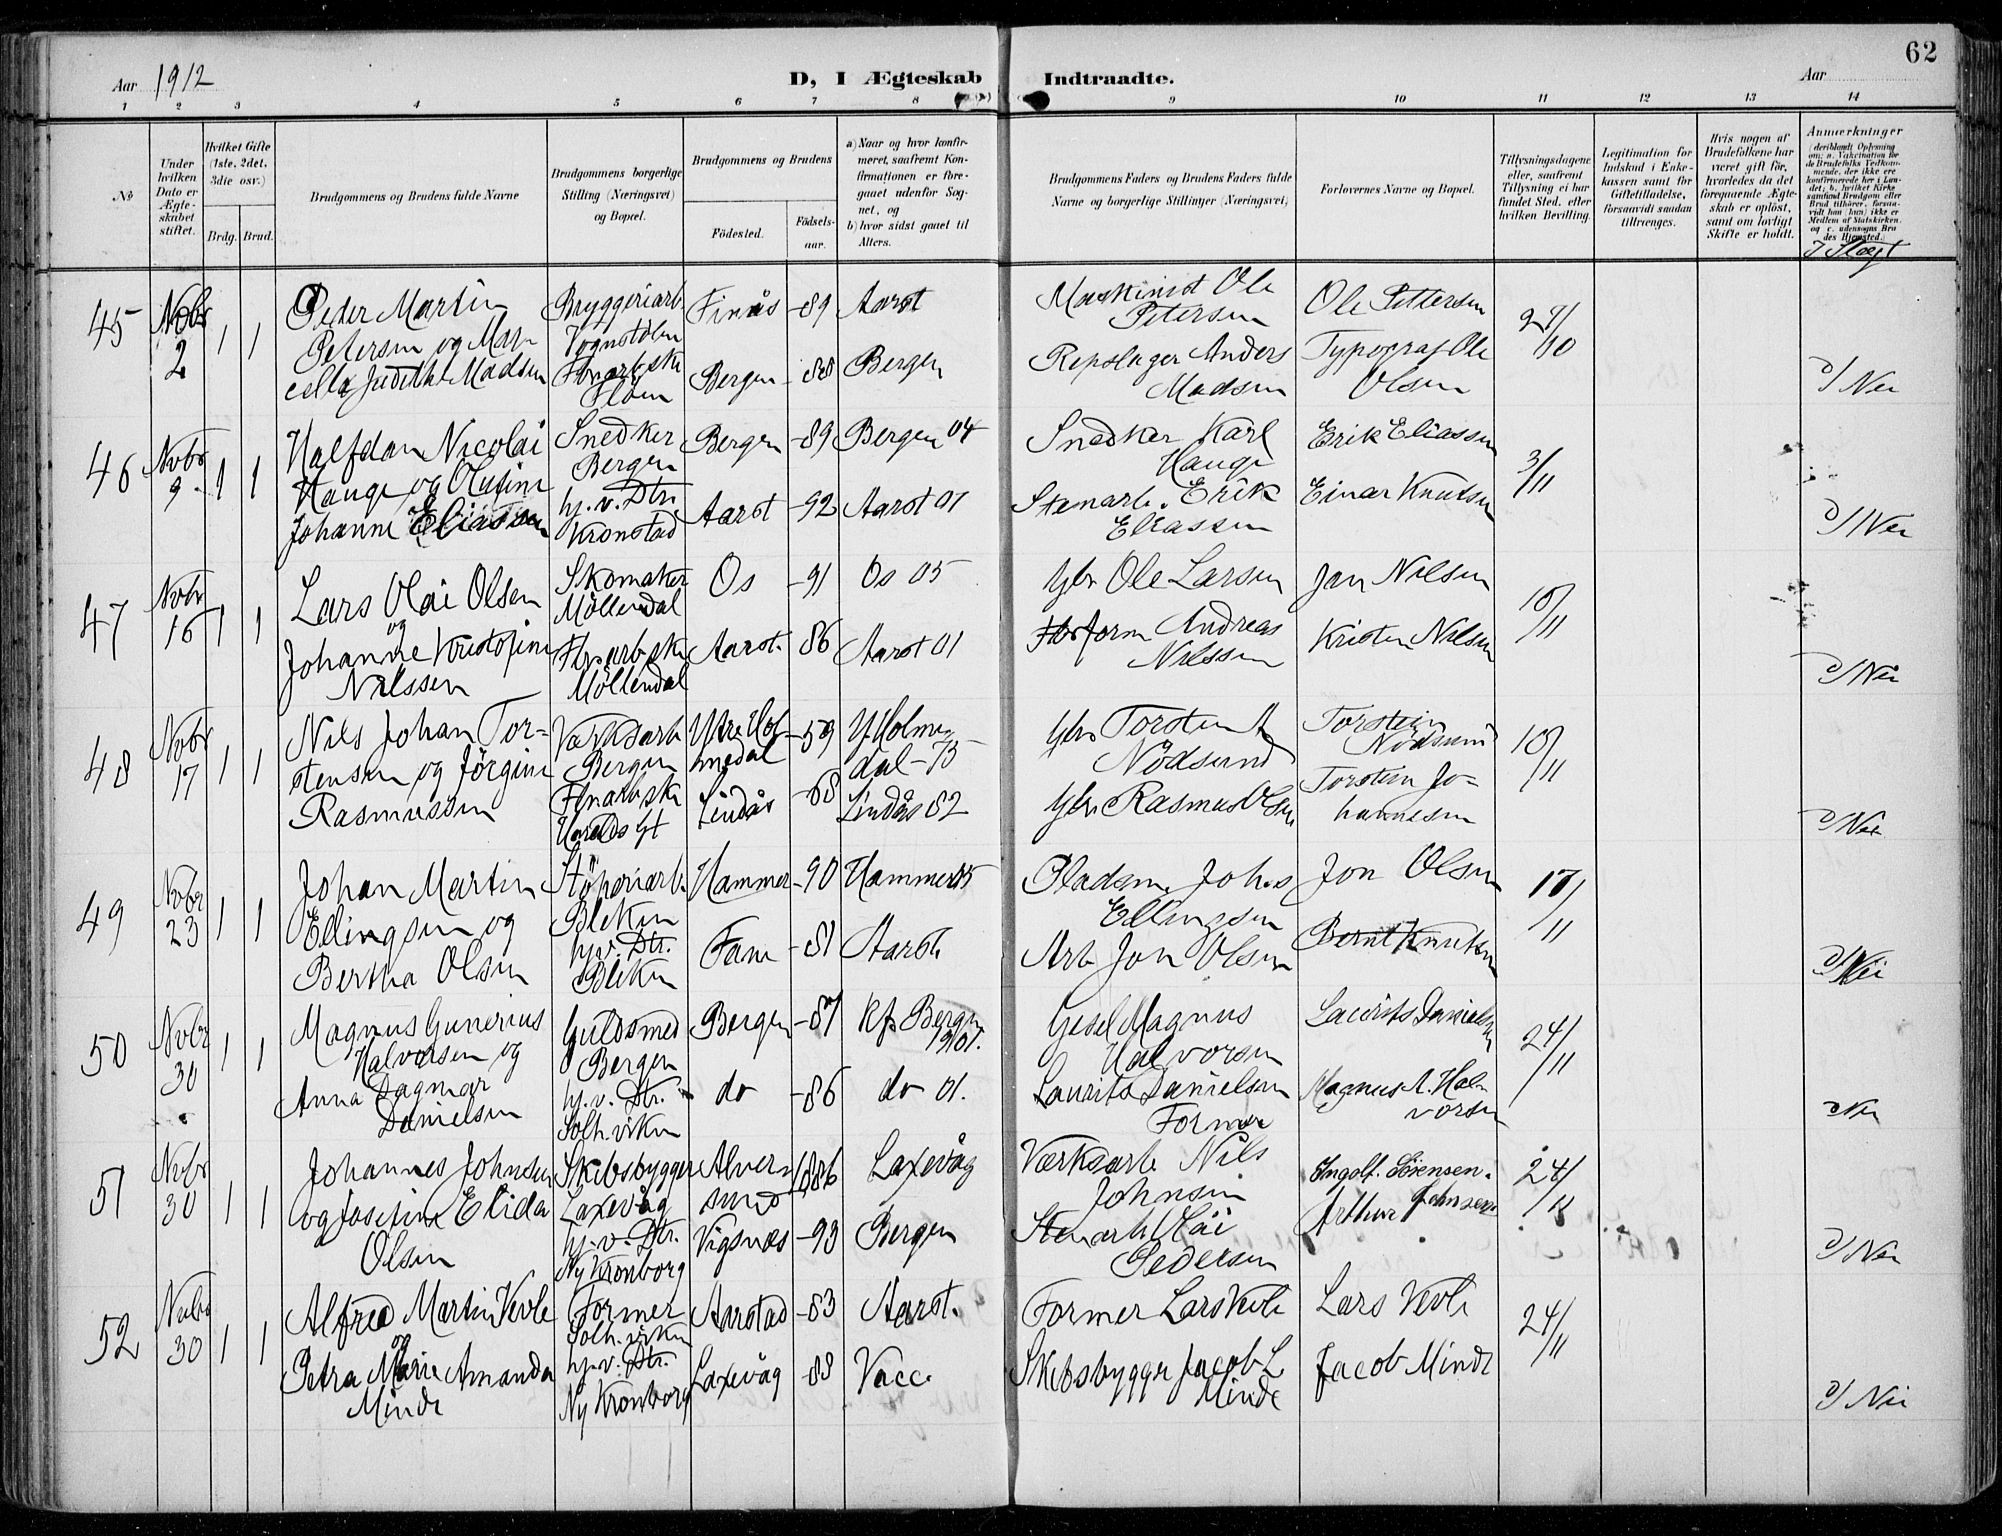 62
Aar 1912
D, I Ægteskab Indtraadte.
Aar
1 2 3 4 5 6 7 8 9 10 11 12 13 14
No
Under hvilken Dato er Ægteskabet stiftet.
Hvilket Gifte (1ste, 2det, 3die osv.)
Brdg. Brud.
Brudgommens og Brudens fulde Navne
Brudgommens borgerlige Stilling (Næringsvei) og Bopæl.
Brudgommens og Brudens
Födested.
Födselsaar.
a) Naar og hvor konfirmeret, saafremt Konfirmationen er foregaaet udenfor Sognet, og
b) hvor sidst gaaet til Alters.
Brudgommens Faders og Brudens Faders fulde Navne og borgerlige Stillinger (Næringsvei)
Forlovernes Navne og Bopæl.
Tillysningsdagene eller, saafremt Tillysning ei har fundet Sted, efter hvilken Bevilling.
Legitimation for Indskud i Enkekassen samt for Giftetilladelse, forsaavidt saadan tiltrænges.
Hvis nogen af Brudefolkene har været gift før, hvorledes da det foregaaende Ægteskab er oplöst, samt om lovligt Skifte er holdt.
Anmerkninger
45 Novbr 2 1 1
Peder Martin
Petersen og Mar-
cella Judithe Madsen
Bryggeriarb
Vognstölen
Finås -89 Aarst
Bergen -88 Bergen
Maskinist Ole
Petersen
Repslager Anders
Madsen
Ole Pettersen
Typograf Ole
Olsen
27/10
d/ Nei
46 Novbr 9 1 1
Halfdan Nicolai
Hauge og Olufine
Johanne Eliassen
Snedker
Bergen
hj. v. Dtr.
Kronstad
Bergen -89 Bergen 04
Aarst -92 Aarst 01
Snedker Karl
Hauge
Stenarb. Erik
Eliassen
Erik Eliassen
Einar Knutsen
3/11
d/ Nei
47 Novbr 16 1 1
Lars Olai Olsen
og
Johanne Kristofine
Nilssen
Skomaker
Möllendal
Möllendal
Os -91 Os 05
Aarst. 86 Aarst 01
Gbr Ole Larsen
Andreas
Nilssen
Jan Nilsen
Kristen Nilsen
10/11
d/ Nei
48 Novbr 17 1 1
Nils Johan Tor-
stensen og Jörgine
Rasmussen
Værksarb
Bergen
Haralds Gt
Ytre Hol-
medal -59
Y Holme
dal -75
Lindås -68 Lindås 82
Gbr Torsten
Nödsund
Gbr Rasmus Olsen
Torstein
Nödsund
Torstein Jo-
hannesen
10/11
d/ Nei
49 Novbr 23 1 1
Johan Martin
Ellingsen og
Bertha Olsen
Stöperiarb.
Bleken
hj. v. Dtr.
Bleken
Hammer -90 Hammer 05
Fane -81 Aarst.
Pladsm. Johs
Ellingsen
Arb Jon Olsen
Jon Olsen
Bernt Knutsen
17/11
d/ Nei
50 Novbr 30 1 1
Magnus Gunerius
Halvorsen og
Anna Dagmar
Danielsen
Guldsmed
Bergen
hj. v. Dtr.
Solh.viken
Bergen -87 Kfs Bergen
1901.
do -86 do 01.
Gesel Magnus
Halvorsen
Laurits Danielsen
Former
Laurits Danielsen
Magnus A. Hal-
vorsen
24/11
d/ Nei
51 Novbr 30 1 1
Johannes Johnsen
og Josefine Elida
Olsen
Skibsbygger
Laxevåg
hj. v. Dtr.
Ny Kronborg
Alver-
sund 1886 Laxevåg
Vigsnæs -93 Bergen
Værksarb Nils
Johnsen
Stenarb Olai
Pedersen
Ingolf. Sörensen.
Arthur Johnsen
24/11
d/ Nei
52 Novbr 30 1 1
Alfred Martin Vevle
og
Petra Marie Amanda
Minde
Former
Solh.viken
hj. v. Dtr.
Ny Kronborg
Aarstad -83 Aarst.
Laxevåg -88 Vacc.
Former Lars Vevle
Skibsbygger Jacob L
Minde
Lars Vevle
Jacob Minde
24/11
d/ Nei